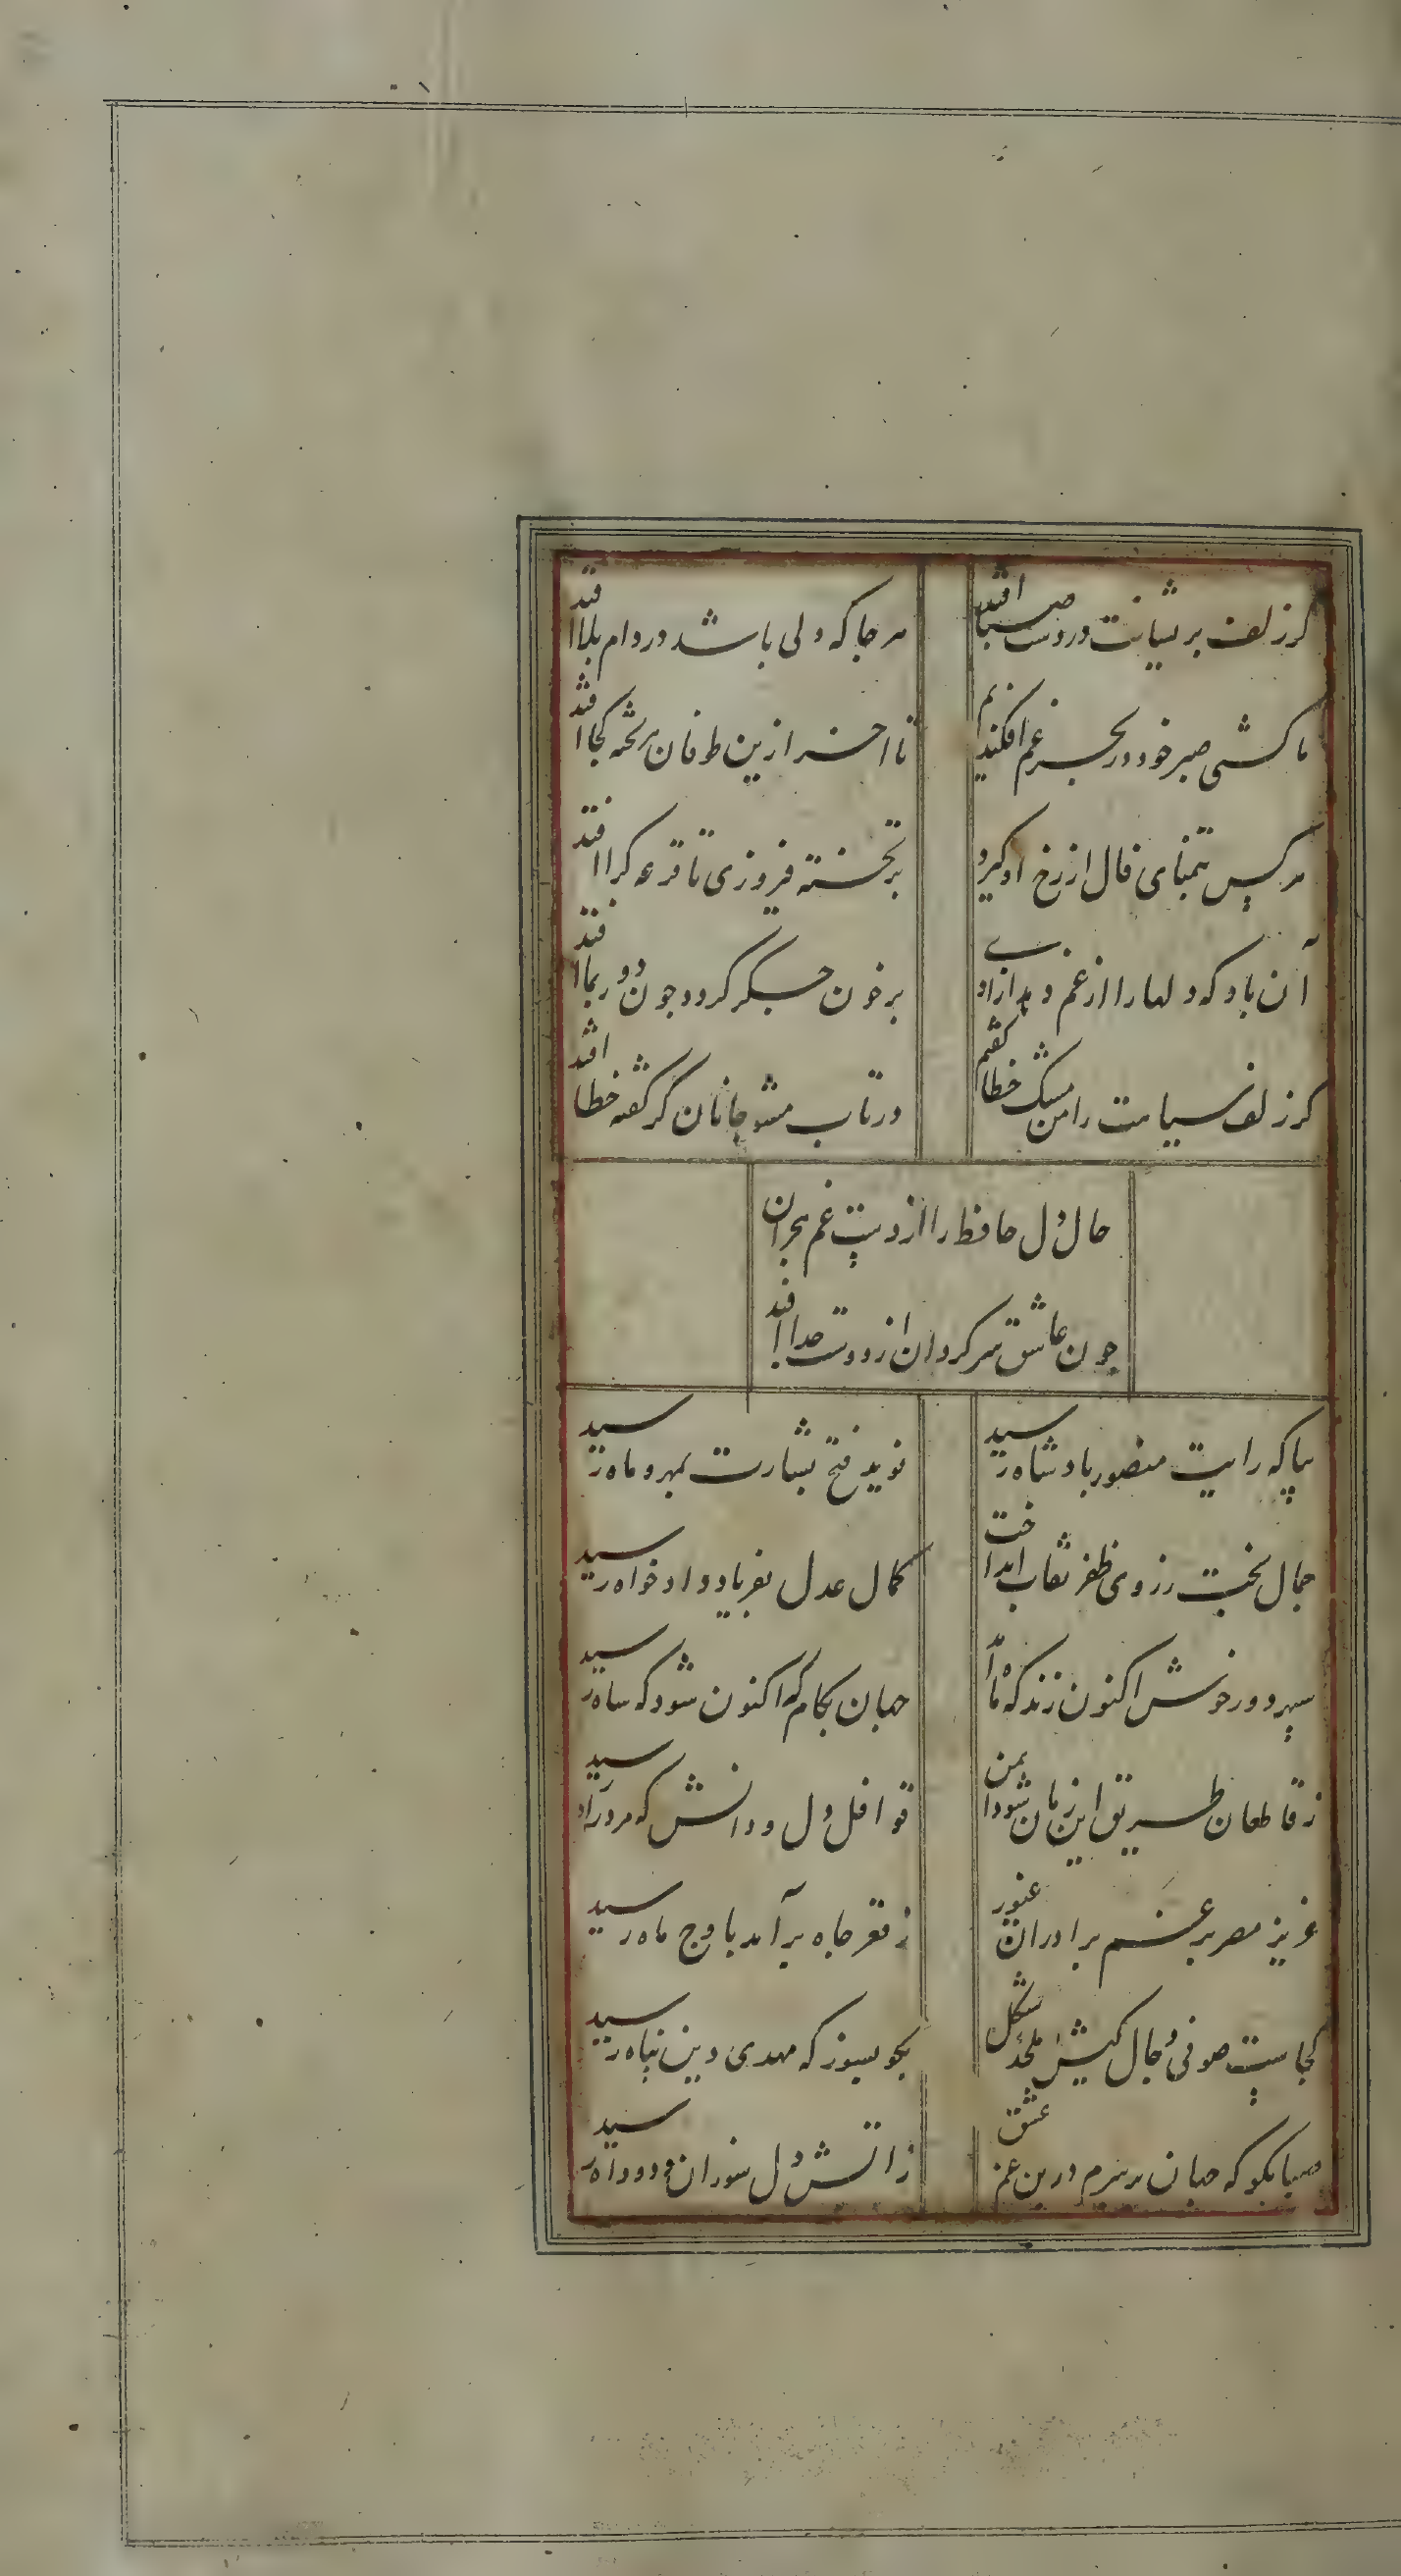 کر زلف پریشانت در دست صبا افتد
هر جا که دلی باشد در دام بلا افتد
ما کشتی صبر خود در بحر غم افکندیم
تا آخر ازین طوفان هر تخته کجا افتد
هر کس بتمنای فال از رخ او کیرد
بر تخته فیروزی تا قرعه کرا افتد
آن باد که دلها را از غم دهد آزادی
بر خون جکر کردد جون دور بما افتد
کر زلف سیاهت را من مشک خطا کفتم
در تاب مشو جانان کر کفته خطا افتد
حال دل حافظ را از دست غم هجران
جون عاشق سرکردان از دوست جدا افتد
بیا که رایت منصور بادشاه رسید
نوید فتح بشارت بمهر و ماه رسید
جمال بخت ز روی ظفر نقاب انداخت
کمال عدل بفریاد دادخواه رسید
سپهر دور خوش اکنون زند که ماه آمد
جهان بکام که اکنون شود که شاه رسید
ز قاطعان طریق این زمان شود ایمن
قوافل دل و دانش که مرد راه رسید
عزیز مصر برغم برادران غیور
ز قعر جاه برآمد باوج ماه رسید
کجاست صوفی دجال کیش ملحد شکل
بکو بسوز که مهدی دین پناه رسید
صبا بکو که جهان بر سرم درین غم عشق
ز آتش دل سوزان و دود آه رسید